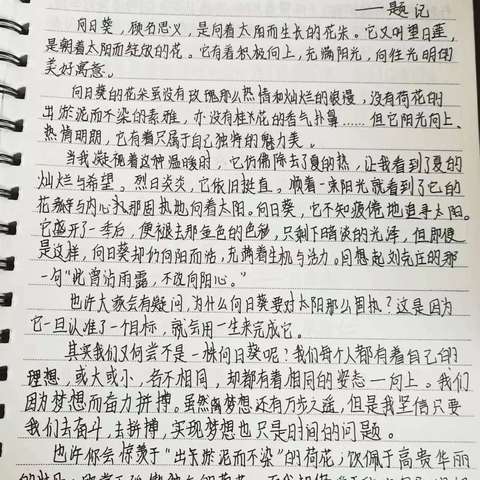 ——题记
向日葵，顾名思义，是向着太阳而生长的花朵。它又叫望日莲，
是朝着太阳而绽放的花。它有着积极向上，充满阳光，向往光明的
美好寓意。
向日葵的花朵虽没有玫瑰那么热情和灿烂的浪漫，没有荷花的
出淤泥而不染的素雅，亦没有桂花的香气扑鼻……但它阳光向上、
热情明朗，它有着只属于自己独特的魅力美。
当我凝视着这种温暖时，它仿佛除去了夏的热，让我看到了夏的
灿烂与希望。烈日炎炎，它依旧挺直。顺着一束阳光就看到了它的
花瓣与内心那固执地向着太阳。向日葵，它不知疲倦地追寻太阳。
它盛开了一季后，便褪去那金色的色彩，只剩下暗淡的光泽，但即便
是这样，向日葵却仍向阳而活，充满着生机与活力。回想起刘克庄的那
一句"此曾沾雨露，不改向阳心。"
也许大家会有疑问，为什么向日葵要对太阳那么固执？这是因为
它一旦认准了一个目标，就会用一生来完成它。
其实我们又何尝不是一株向日葵呢？我们每个人都有着自己的
理想，或大或小，各不相同，却都有着相同的姿态一向上。我们
因为梦想而奋力拼搏。虽然离梦想还有万步之遥，但是我坚信只要
我们去奋斗，去拼搏，实现梦想也只是时间的问题。
也许你会惊羡于"出淤泥而不染"的荷花，钦佩于高贵华丽